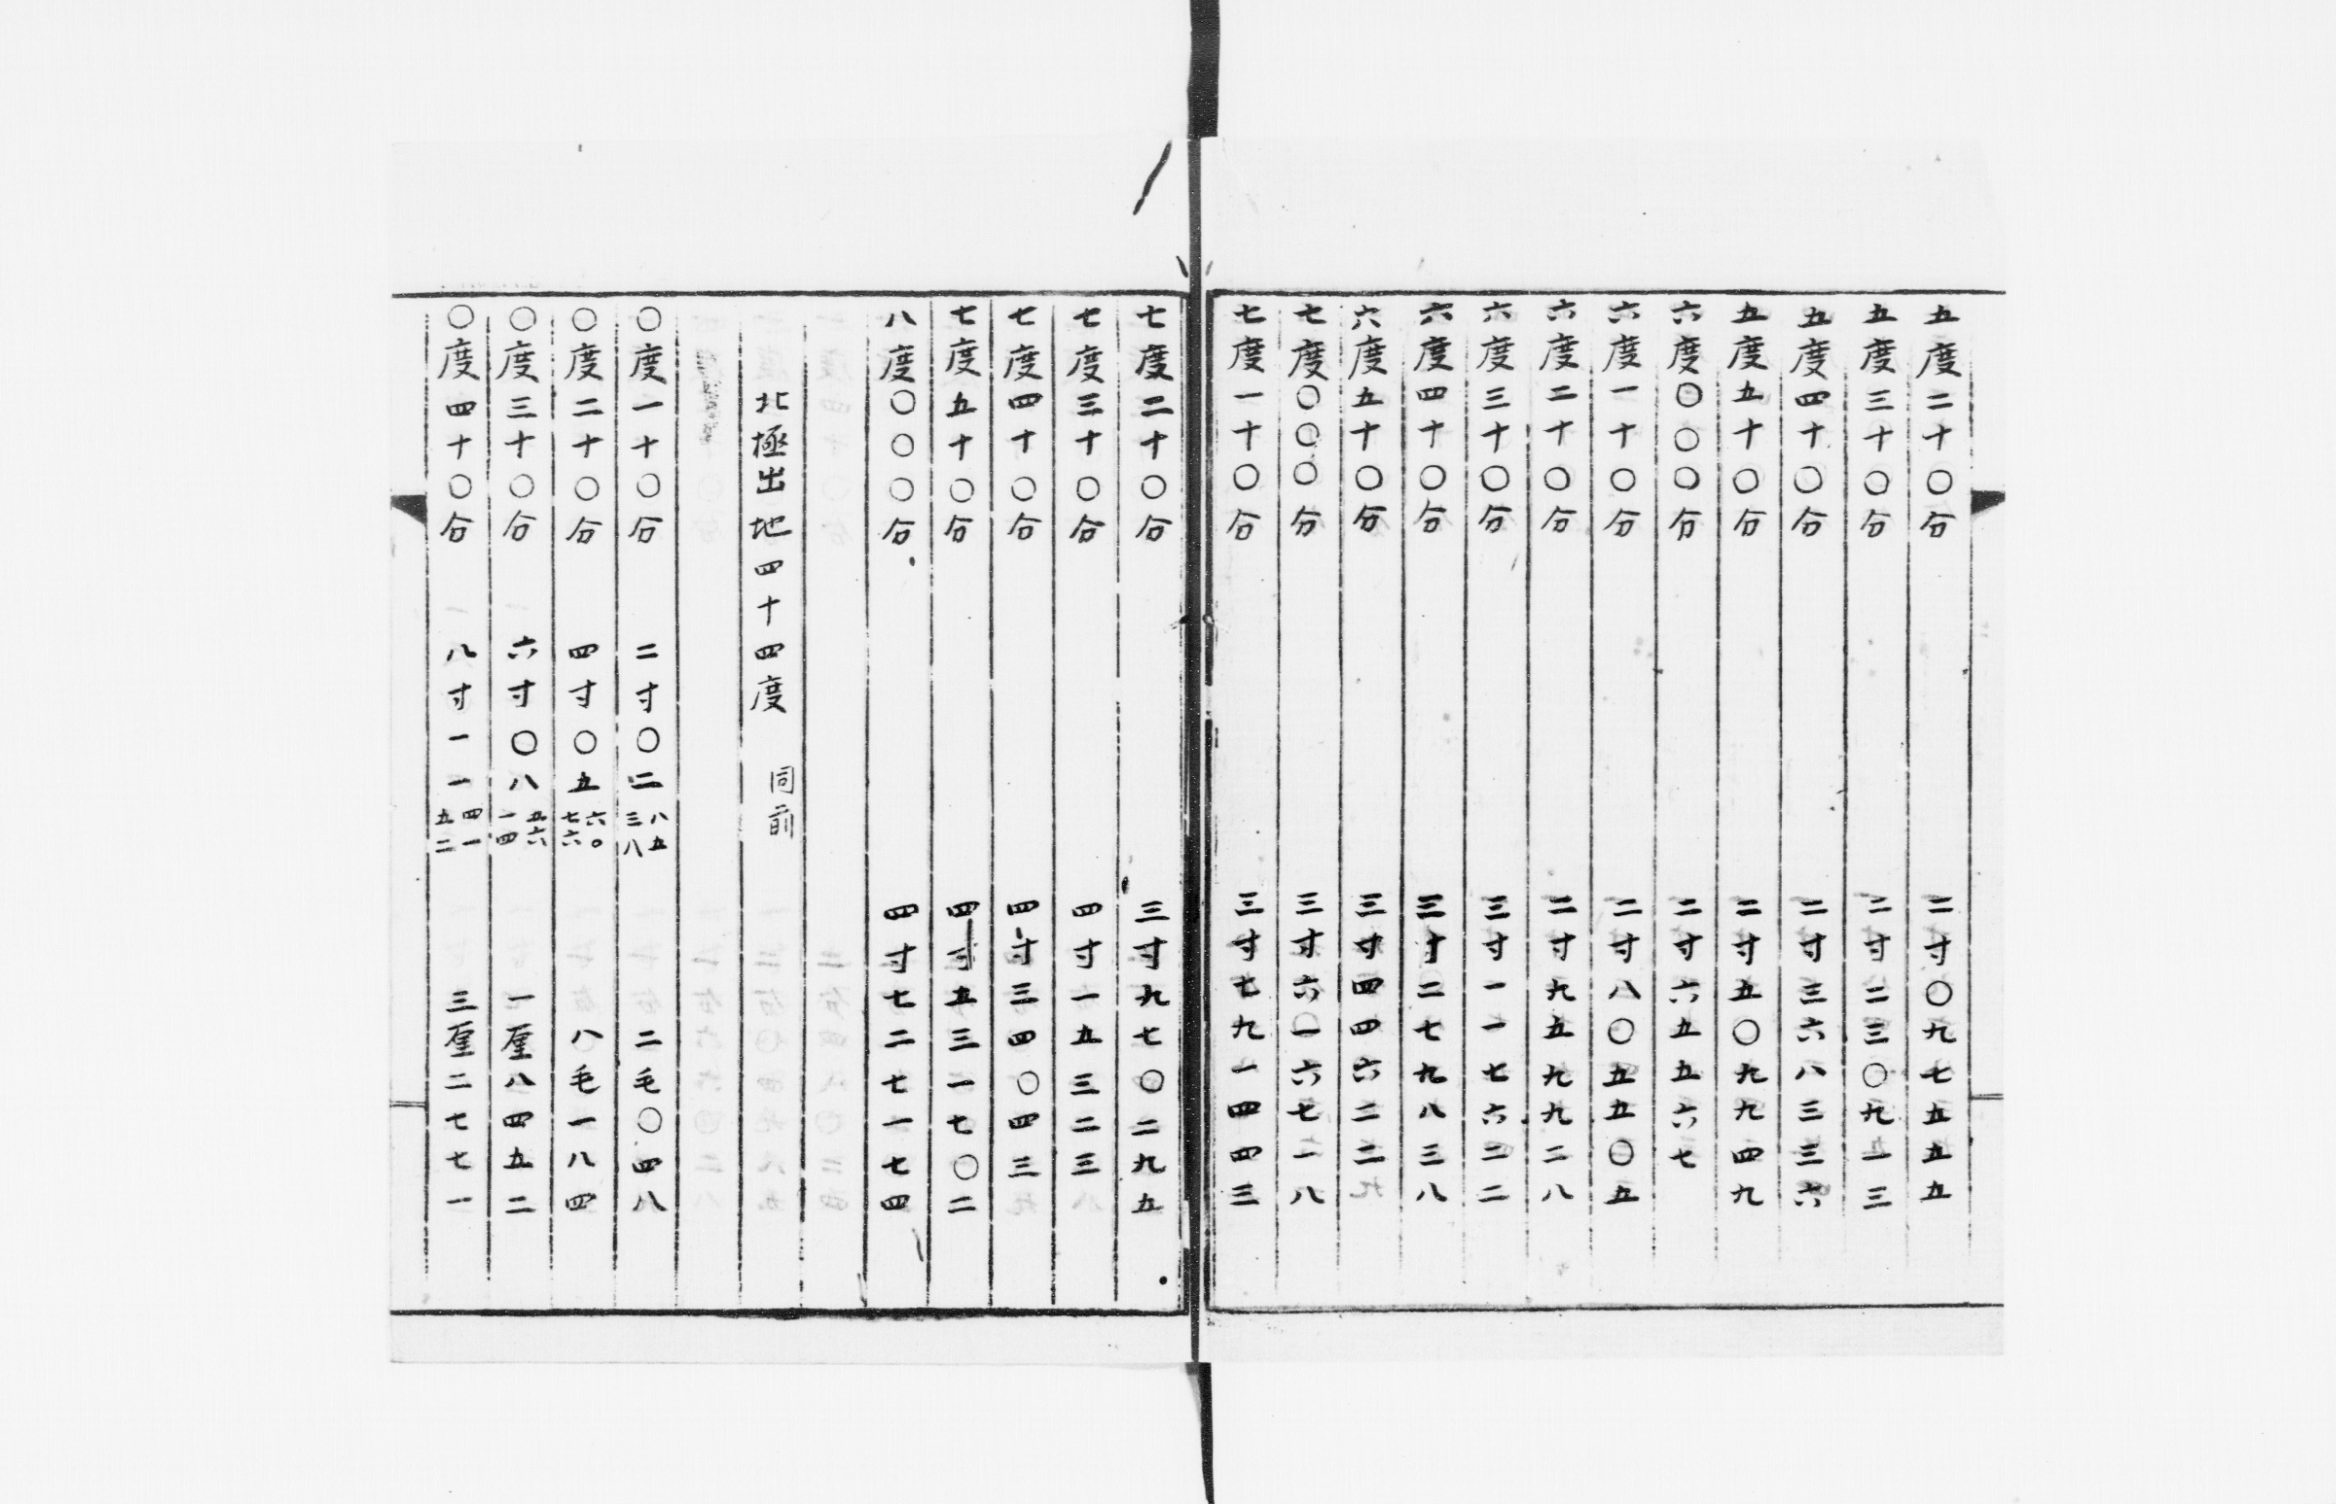 五度二十〇分 二寸〇九七五五五
五度三十〇分 二寸二三〇九一三
五度四十〇分 二寸三六八三三六
五度五十〇分 二寸五〇九九四九
六度〇〇〇分 二寸六五五六七
六度一十〇分 二寸八〇五五〇五
六度二十〇分 二寸九五九九二八
六度三十〇分 三寸一一七六二二
六度四十〇分 三寸二七九八三八
六度五十〇分 三寸四四六二二
七度〇〇〇分 三寸六一六七一八
七度一十〇分 三寸七九一四四三
七度二十〇分 三寸九七〇二九五
七度三十〇分 四寸一五三二三
七度四十〇分 四寸三四〇四三
七度五十〇分 四寸五三一七〇二
八度〇〇〇分 四寸七二七一七四
北極出地四十四度 同前
〇度一十〇分 二寸〇二八五三八 二毛〇四八
〇度二十〇分 四寸〇五六〇七六 八毛一八四
〇度三十〇分 六寸〇八五六一四 一厘八四五二
〇度四十〇分 八寸一一四一五二 三厘二七七一